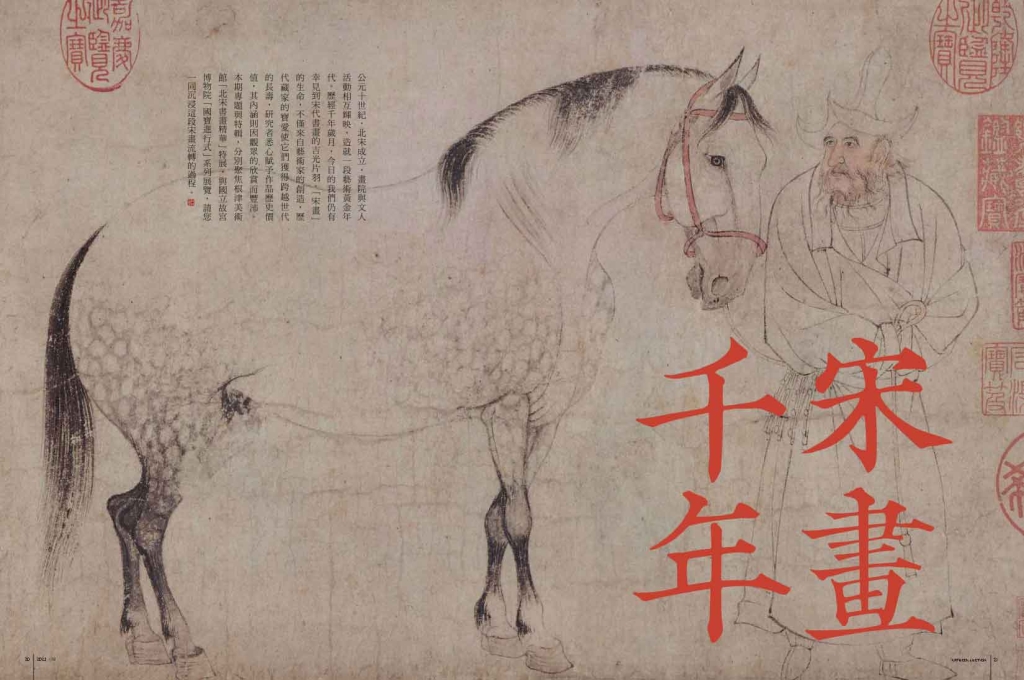 乾隆御覽之寶
宋畫
千年
公元十世紀，北宋成立，畫院與文人
活動相互輝映，造就一段藝術黃金年
代。歷經千年歲月，今日的我們仍有
幸見到宋代書畫的吉光片羽。「宋畫」
的生命，不僅來自藝術家的創造，歷
代藏家的寶愛使它們獲得跨越世代
的長壽，研究者悉心賦予作品歷史價
值，其內涵則因觀眾的欣賞而豐沛。
本期專題與特輯，分別聚焦根津美術
館「北宋書畫精華」特展，與國立故宮
博物院「國寶進行式」系列展覽，請您
一同沉浸這段宋畫流轉的過程。
嘉慶御覽之寶